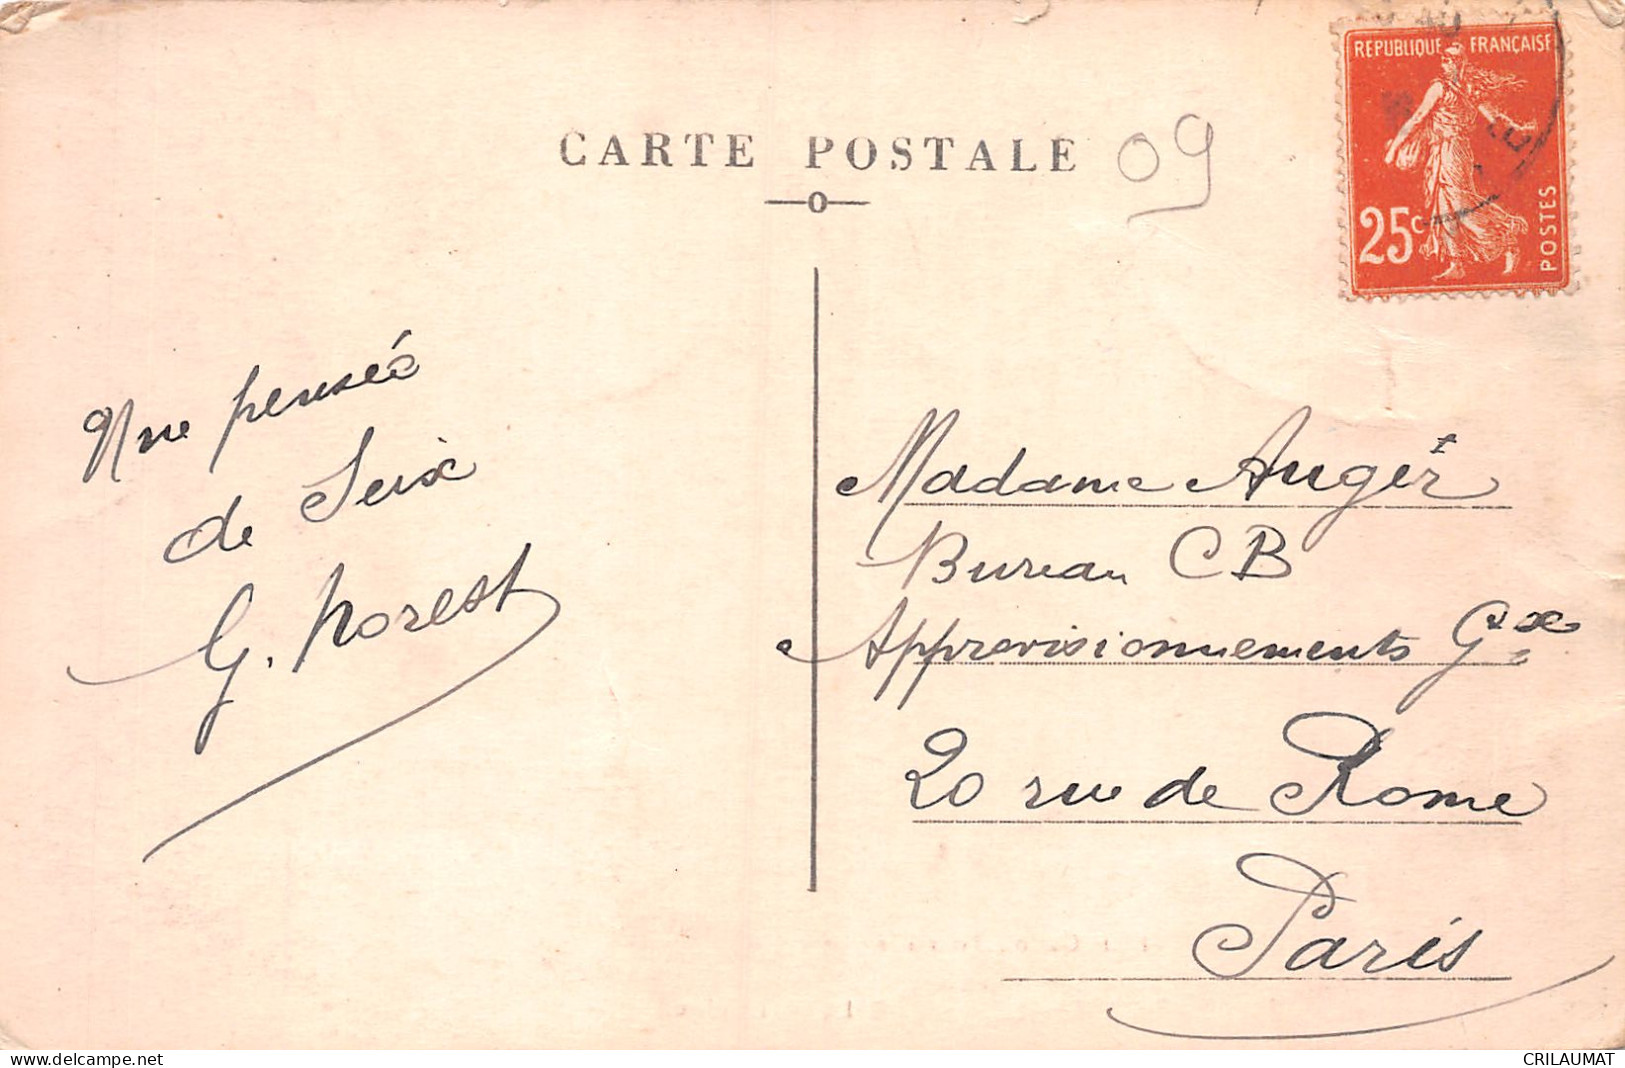 CARTE POSTALE
09
REPUBLIQUE FRANÇAISE
25c
POSTES
Une pensée
de Seix
G. Morest
Madame Auger
Bureau CB
Approvisionnements Gx
20 rue de Rome
Paris
www.delcampe.net
CRILAUMAT